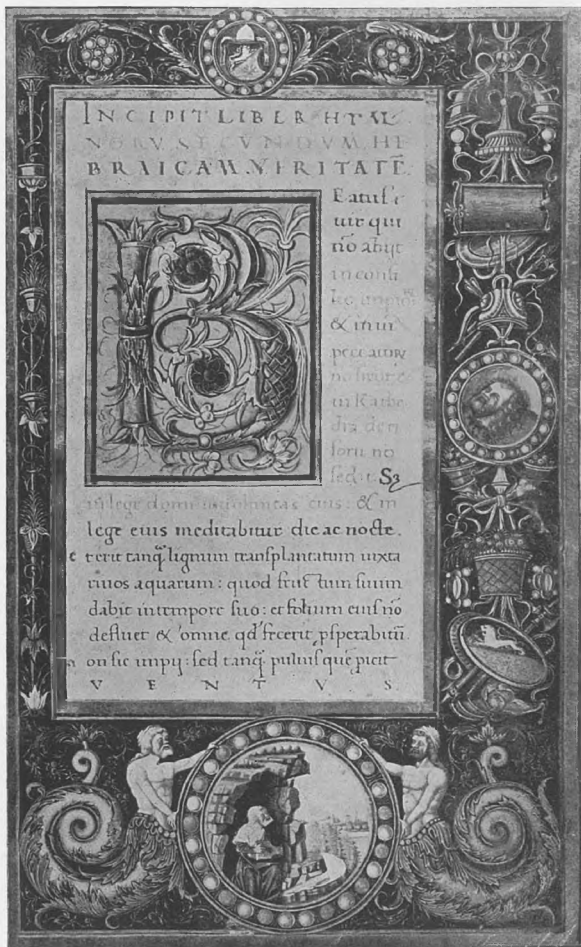 INCIPIT LIBER HYM
NORV̅ SECVNDVM HE
BRAICAM VERITATĒ
Eatus ē
uir qui
nō abijt
in consi
lio impioꝝ
& in ui
peccatoꝝ
nō stetit
in Kathe
dra deri
sorū nō
sedit. Sꝫ
in lege domini uoluntas eius: & in
lege eius meditabitur die ac nocte.
et erit tanq̄ lignum transplantatum iuxta
riuos aquarum: quod fructum suum
dabit in tempore suo: et folium eius nō
defluet & omne qd̄ fecerit, ꝓsperabit̄
n on sic impij: sed tanq̄ puluis quē ꝓicit
VENTVS